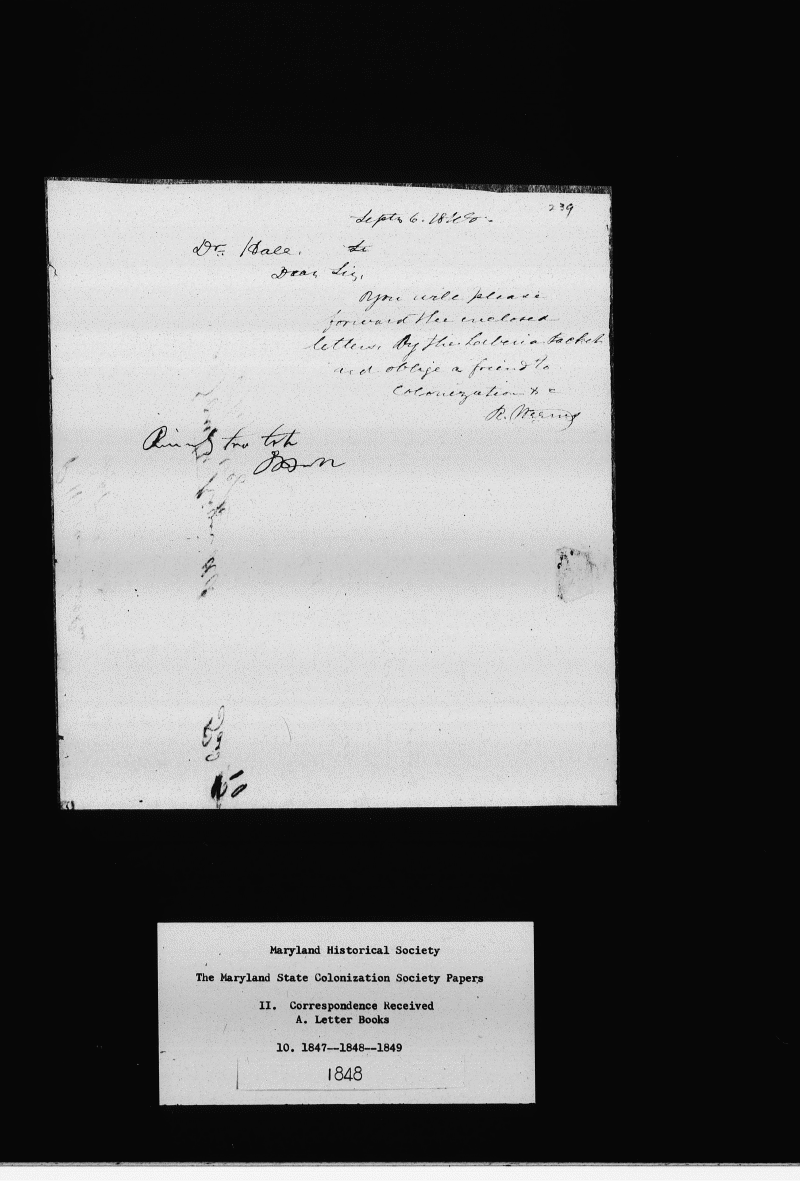 239
Septr 6. 1848.
Dr. Hall.
Dear Sir,
You will please
forward the enclosed
letters, By the Liberia Packet
and oblige a friend to
Colonization &c
R.
two
Maryland Historical Society
The Maryland State Colonization Society Papers
II. Correspondence Received
A. Letter Books
10. 1847--1848--1849
1848